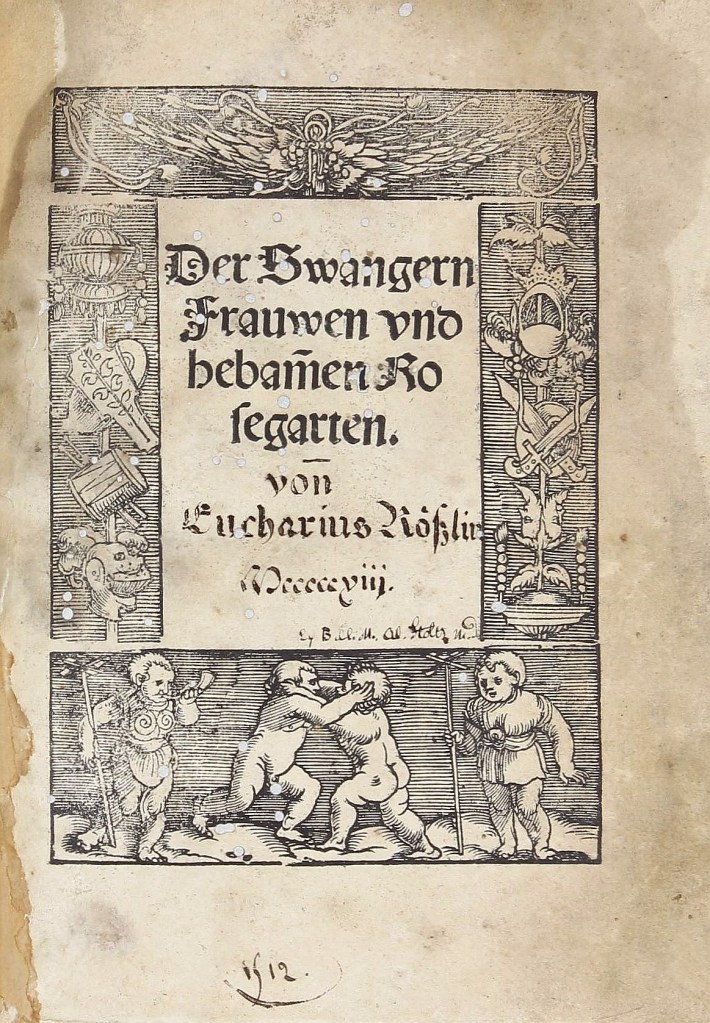 Der Swangern
Frauwen vnd
hebam̄en Ro
segarten.
von
Eucharius Rößlin
Mccccxiii.
1512.